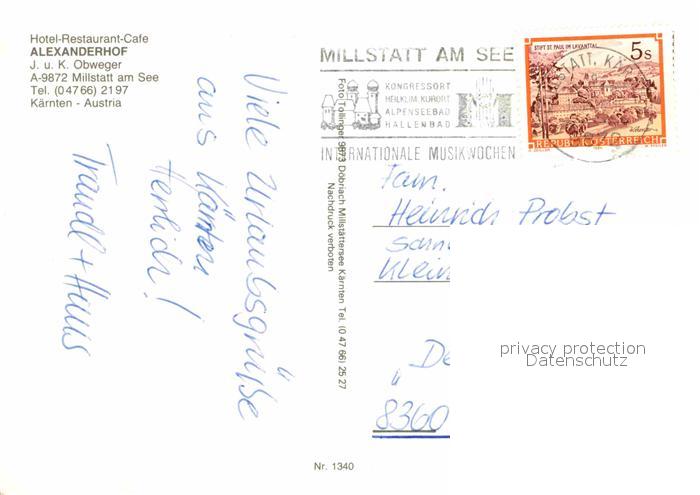 Hotel-Restaurant-Cafe
ALEXANDERHOF
J. u. K. Obweger
A-9872 Millstatt am See
Tel. (04766) 2197
Kärnten - Austria
Viele Urlaubsgrüße
aus Kärnten
Herlich!
Traudl + Hans
Foto Tollinger 9873 Döbriach Millstättersee Kärnten Tel. (04766) 2527
Nachdruck verboten
MILLSTATT AM SEE
KONGRESSORT
HEILKLIM. KURORT
ALPENSEEBAD
HALLENBAD
INTERNATIONALE MUSIKWOCHEN
STIFT ST. PAUL IM LAVANTTAL
5s
REPUBLIK ÖSTERREICH
Fam.
Heinrich Probst
Schm
Klein
privacy protection
Datenschutz
"De
8360
Nr. 1340